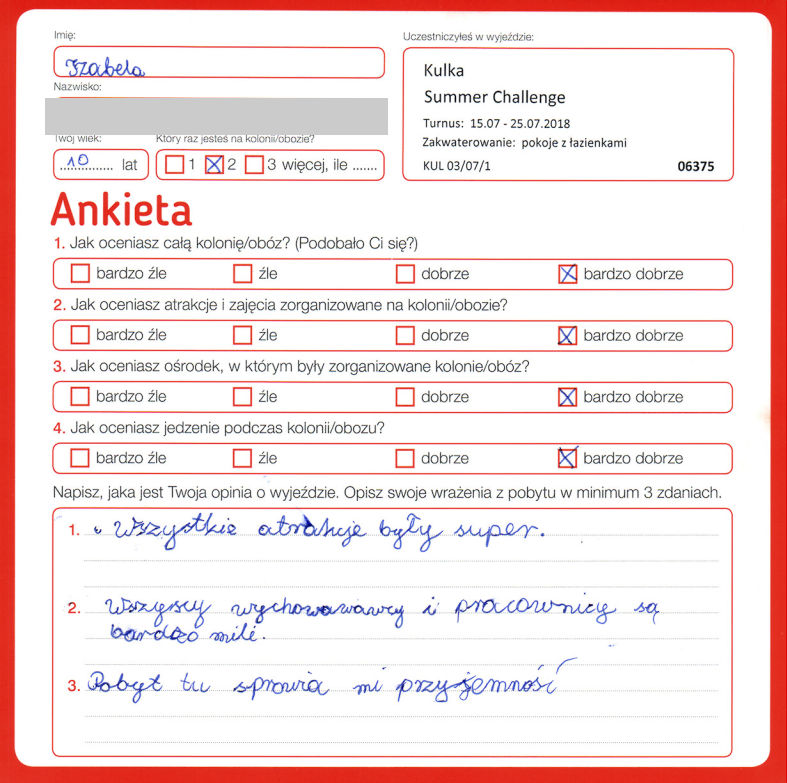 Imię:
Izabela
Nazwisko:
Twój wiek:
10 lat
Który raz jesteś na kolonii/obozie?
1 2 3 więcej, ile .......
Uczestniczyłeś w wyjeździe:
Kulka
Summer Challenge
Turnus: 15.07 - 25.07.2018
Zakwaterowanie: pokoje z łazienkami
KUL 03/07/1 06375
Ankieta
1. Jak oceniasz całą kolonię/obóz? (Podobało Ci się?)
bardzo źle źle dobrze bardzo dobrze
2. Jak oceniasz atrakcje i zajęcia zorganizowane na kolonii/obozie?
bardzo źle źle dobrze bardzo dobrze
3. Jak oceniasz ośrodek, w którym były zorganizowane kolonie/obóz?
bardzo źle źle dobrze bardzo dobrze
4. Jak oceniasz jedzenie podczas kolonii/obozu?
bardzo źle źle dobrze bardzo dobrze
Napisz, jaka jest Twoja opinia o wyjeździe. Opisz swoje wrażenia z pobytu w minimum 3 zdaniach.
1. Wszystkie atrakcje były super.
2. Wszyscy wychowawawcy i pracownicy są
bardzo mili.
3. Pobyt tu sprawia mi przyjemność